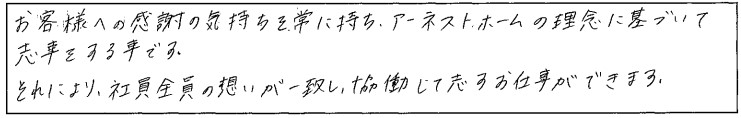 お客様への感謝の気持ちを常に持ち、アーネストホームの理念に基づいて
志事をする事です。
それにより、社員全員の想いが一致し、協働して志すお仕事ができます。